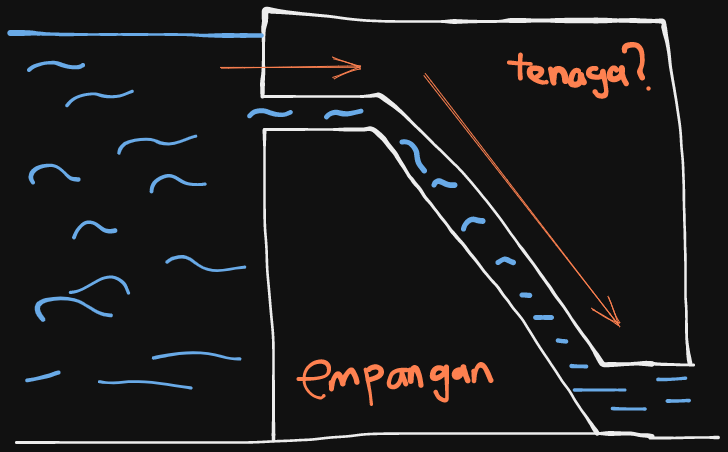 tenaga?
empangan